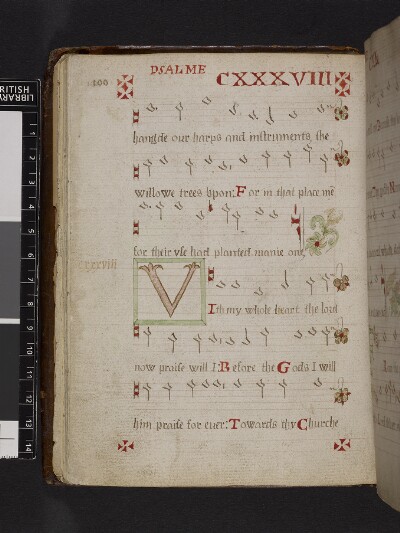 100
PSALME CXXXVIII
hangde our harps and instruments, the
willowe trees vpon: For in that place mē
for their vse had planted manie one,
cxxxviii
VVith my whole heart the lord
now praise will I: Before the Gods I will
him praise for euer: Towards thy Churche